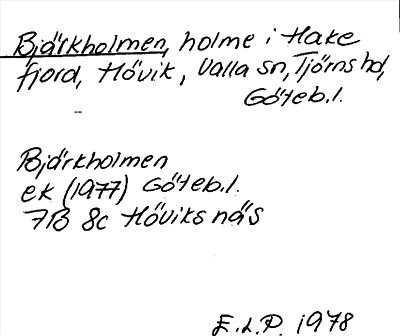 Bjärkholmen, holme i Hake
fjord, Hövik, Valla sn, Tjörns hd,
Göteb.l.
Bjärkholmen
ek (1977) Göteb.l.
7B 8c Höviksnäs
E.L.P. 1978